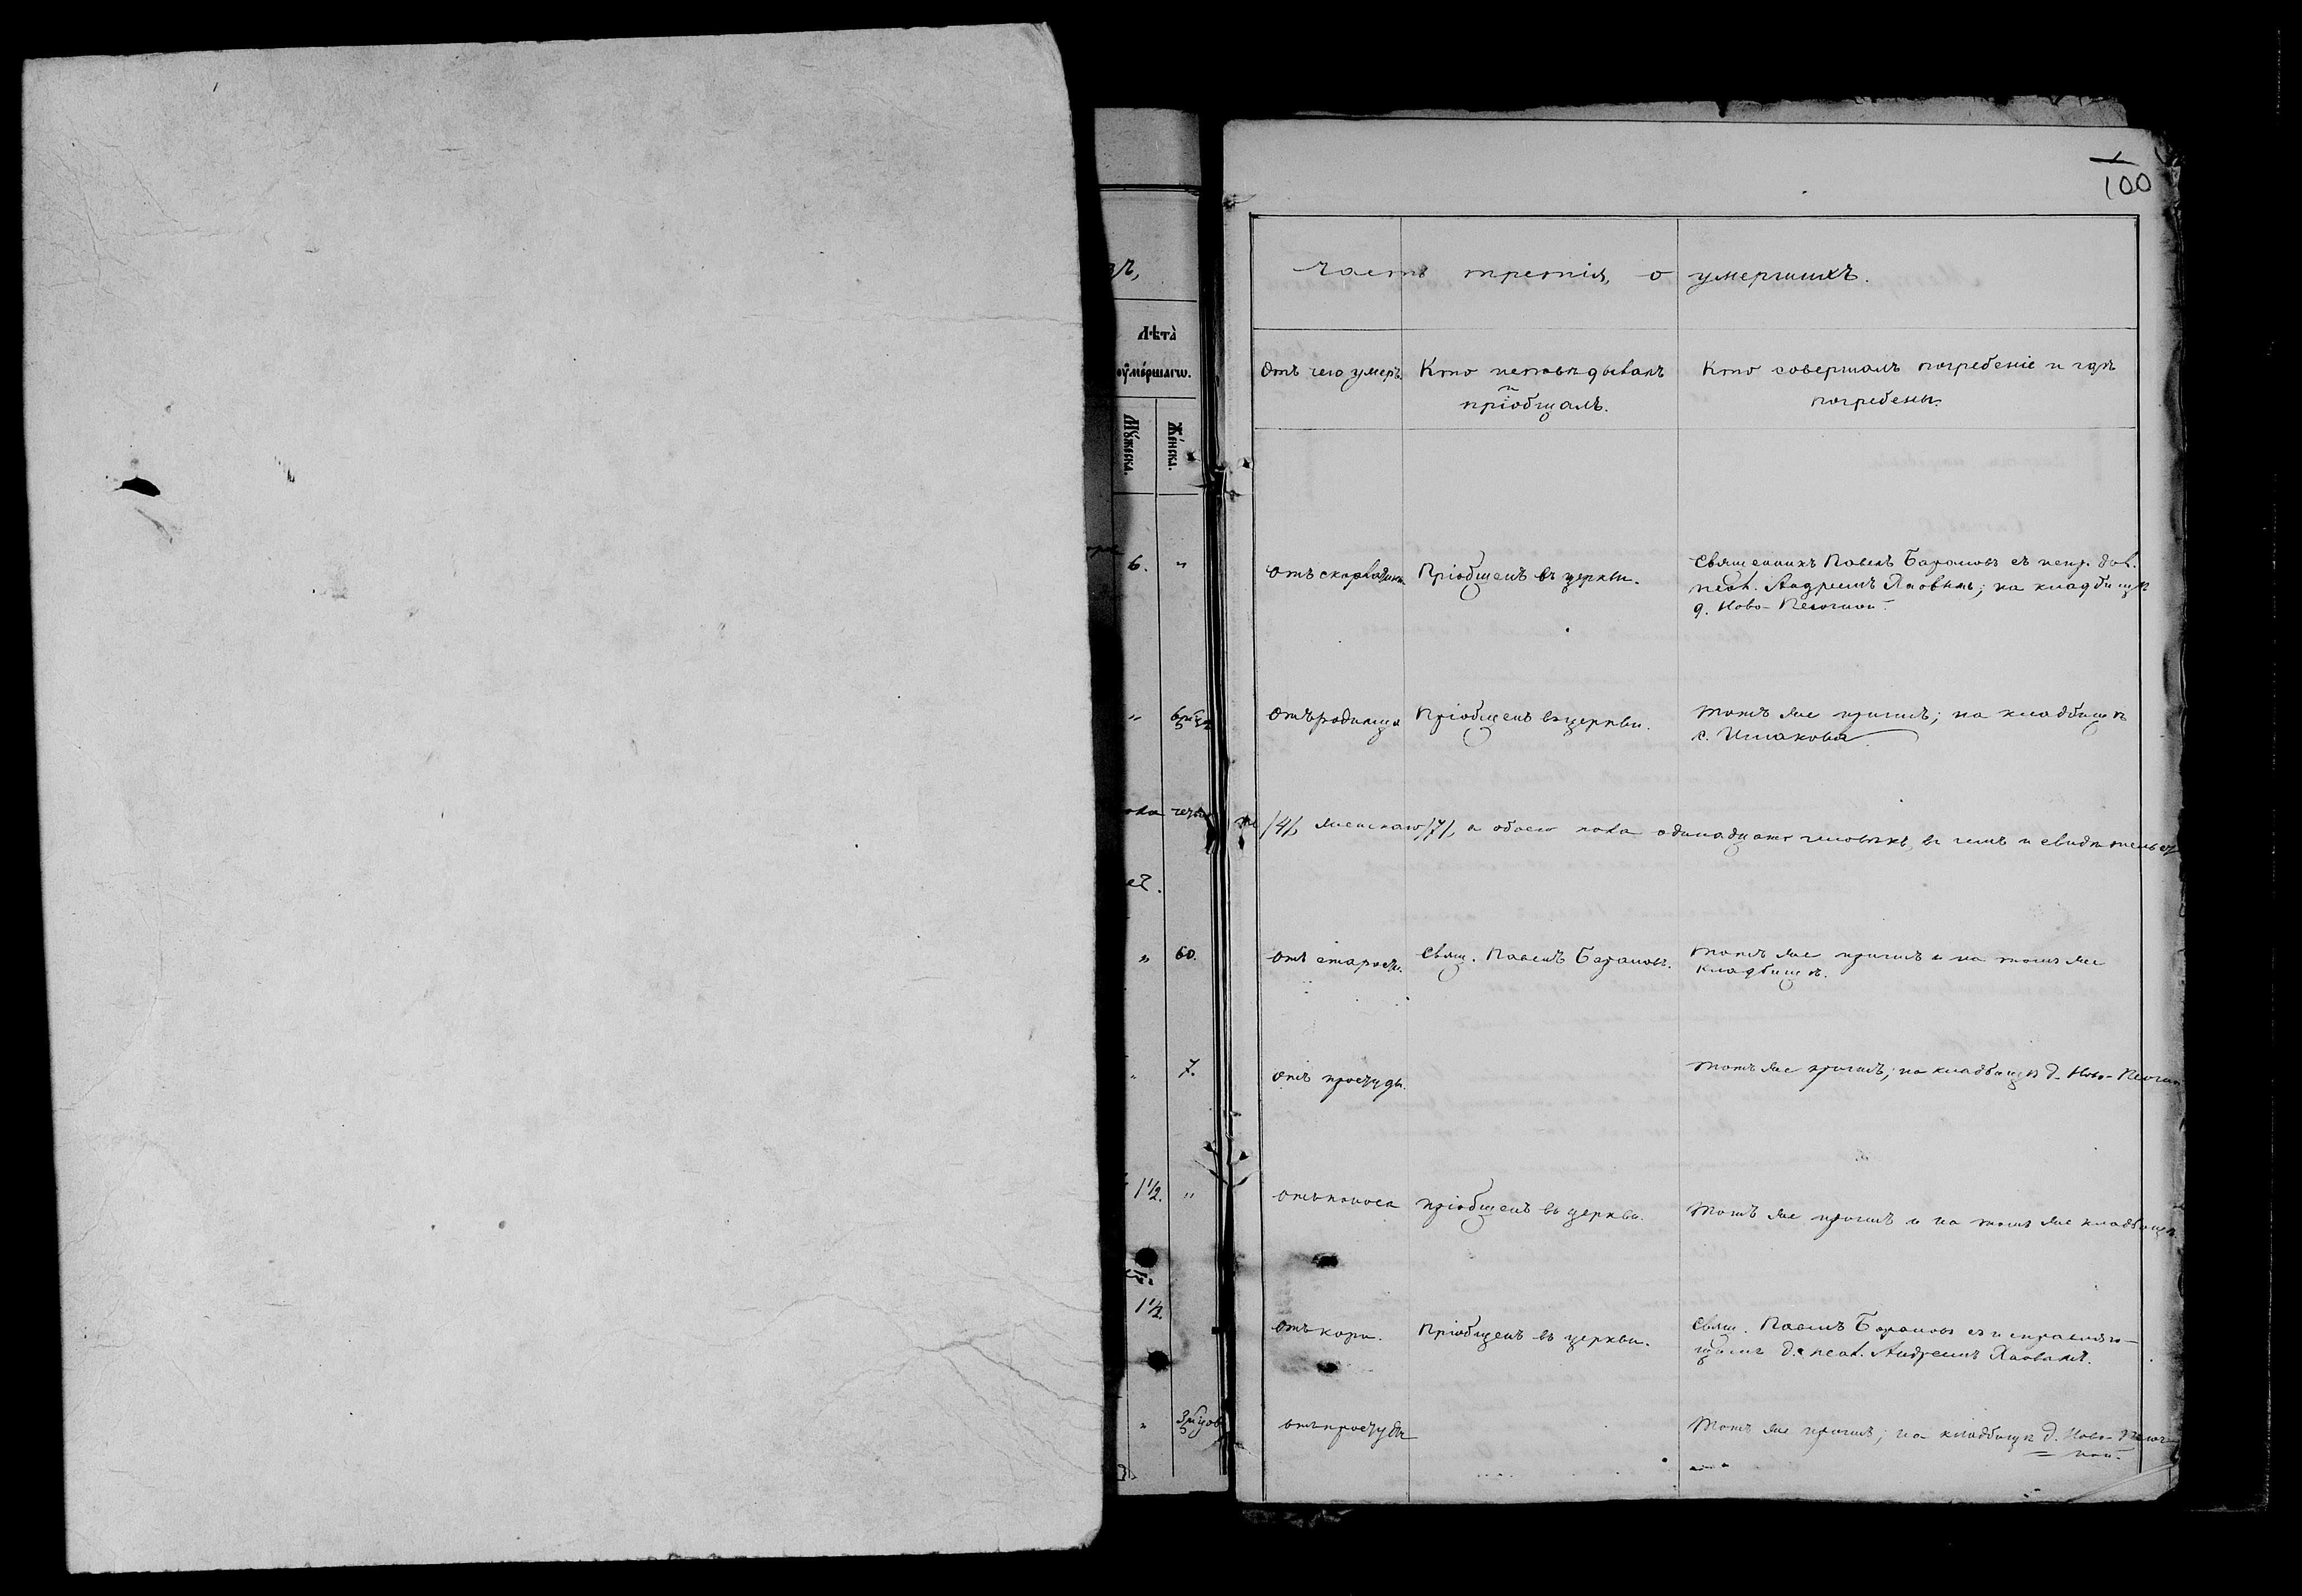 100
Часть третія, о умершихъ.
Лѣта
оумершагω.
Мужеска.
Женска.
Отъ чего умеръ.
Кто исповѣдывалъ
и
пріобщалъ.
Кто совершалъ погребеніе и гдѣ
погребены.
6.
"
Пріобщенъ въ церкви.
Священникъ Павелъ Барановъ съ испр. дол.
псал. Андреемъ; на кладбищѣ
д. Ново-
"
6 мѣц.
Отъ родимца
Пріобщенъ въ церкви.
Тотъ же причтъ; на кладбищѣ
с. Ишакова
/4/, женскаго /7/, а обоего пола одинадцать человѣкъ, въ чемъ и свидѣтельст
"
60.
Отъ старости.
Свящ. Павелъ Барановъ.
Тотъ же причтъ и на томъ же
кладбищѣ.
7.
Отъ простуды.
Тотъ же причтъ; на кладбищѣ д. Ново-
1½.
"
Отъ поноса
Пріобщенъ въ церкви.
Тотъ же причтъ и на томъ же кладбищѣ.
1½.
Отъ кори.
Пріобщенъ въ церкви.
Свящ. Павелъ Барановъ съ исправляю-
щимъ д. псал. Андреемъ
"
3 мѣцов
Отъ простуды
Тотъ же причтъ; на кладбищѣ д. Ново-
ной.